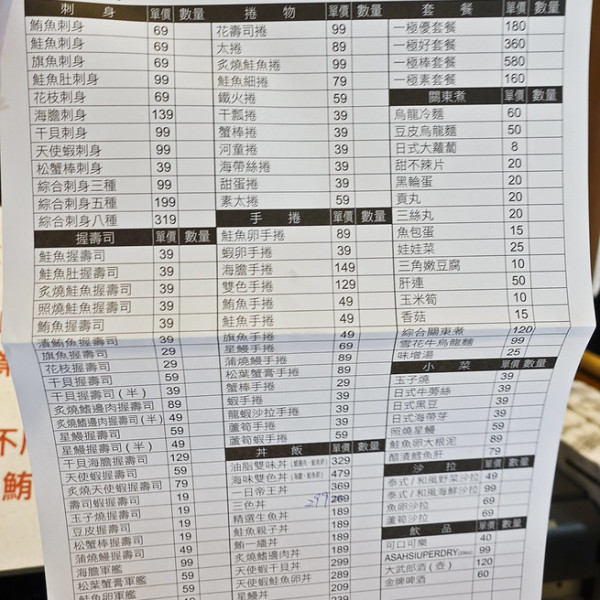 刺身 單價 數量
鮪魚刺身 69
鮭魚刺身 69
旗魚刺身 69
鮭魚肚刺身 99
花枝刺身 69
海膽刺身 139
干貝刺身 99
天使蝦刺身 99
松蟹棒刺身 39
綜合刺身三種 99
綜合刺身五種 199
綜合刺身八種 319
握壽司 單價 數量
鮭魚握壽司 39
鮭魚肚握壽司 39
炙燒鮭魚握壽司 39
照燒鮭魚握壽司 39
鮪魚握壽司 39
漬鮪魚握壽司 39
旗魚握壽司 29
花枝握壽司 29
干貝握壽司 59
干貝握壽司(半) 39
炙燒鰭邊肉握壽司 89
炙燒鰭邊肉握壽司(半) 49
星鰻握壽司 59
星鰻握壽司(半) 49
干貝海膽握壽司 129
天使蝦握壽司 59
炙燒天使蝦握壽司 79
壽司蝦握壽司 19
玉子燒握壽司 19
豆皮握壽司 19
松蟹棒握壽司 19
蒲燒鰻握壽司 49
海膽軍艦 99
松葉蟹膏軍艦 59
鮭魚卵軍艦
捲物 單價 數量
花壽司捲 99
太捲 89
炙燒鮭魚捲 99
鮭魚細捲 79
鐵火捲 59
干瓢捲 39
蟹棒捲 39
河童捲 39
海帶絲捲 39
甜蛋捲 39
素太捲 59
手捲 單價 數量
鮭魚卵手捲 89
蝦卵手捲 39
海膽手捲 149
雙色手捲 129
鮪魚手捲 49
鮭魚手捲 49
旗魚手捲 49
星鰻手捲 69
蒲燒鰻手捲 89
松葉蟹膏手捲 89
蟹棒手捲 29
蝦手捲 39
龍蝦沙拉手捲 39
蘆筍手捲 39
蘆筍蝦手捲 59
丼飯 單價 數量
油脂雙味丼 329
海味雙色丼 479
一日帝王丼 369
三色丼 297 269
精選生魚丼 189
鮭魚親子丼 189
鮪一繙丼 189
炙燒鰭邊肉丼 189
天使蝦干貝丼 299
天使蝦鮭魚卵丼 289
星鰻丼 209
套餐 單價 數量
一極優套餐 180
一極好套餐 360
一極棒套餐 580
一極素套餐 160
關東煮 單價 數量
烏龍冷麵 60
豆皮烏龍麵 50
日式大蘿蔔 8
甜不辣片 20
黑輪蛋 20
貢丸 20
三絲丸 20
魚包蛋 15
娃娃菜 25
三角嫩豆腐 10
肝連 50
玉米筍 10
香菇 15
綜合關東煮 120
雪花牛烏龍麵 99
味增湯 25
小菜 單價 數量
玉子燒 39
日式牛蒡絲 39
日式黑豆 39
日式海帶芽 39
照燒星鰻 59
鮭魚卵大根泥 89
醋漬鱈魚肝 79
沙拉 單價 數量
泰式/和風野菜沙拉 49
泰式/和風海鮮沙拉 99
魚卵沙拉 69
蘆筍沙拉 49
飲品 單價 數量
可口可樂 40
ASAHSIUPERDRY 99
大武郎酒(壺) 120
金牌啤酒 60